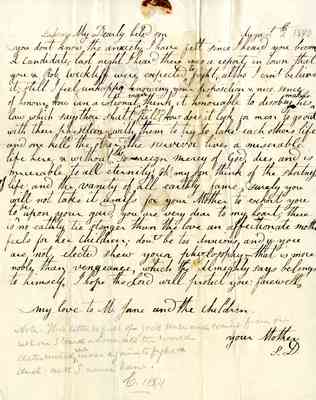 My Dearly beld on August 8th 1840
you dont know the anxiety I have felt since I heard you became
a Candidate, last night I heard there was a report in town that
you & Robt Wickliff were expected to fight, altho I cant believe
it, still I feel unhappy knowing your profession & nice
of honour, how can a rational think it honourable to desobey his
law which says thou shalt not kill how does it look for men to go out
with there phisitions with them to try to take each others life
and one kills the other the survivor lives a miserable
life here, & without the soverreign mercy of God dies and is
miserable to all eternity, oh my son think of the shortness
of life, and the vanity of all earthly fame, surely you
will not take it amiss for your Mother to exhort you
to upon your guard, you are very dear to my heart, there
is no earthly tie stronger than the love an affectionate mother
feels for her children, dont be too anxious, and if you
are not elected shew your philosophy that is more
noble than vengeance, which the almighty says belongs
to himself, I hope the Lord will protect you farewell,
my love to M Jane and the children.
your Mother
S. D
Note. This letter is full of good sense and coming from one
whom I
determined me never again to fight a
duel – until I never have.
C. 1884